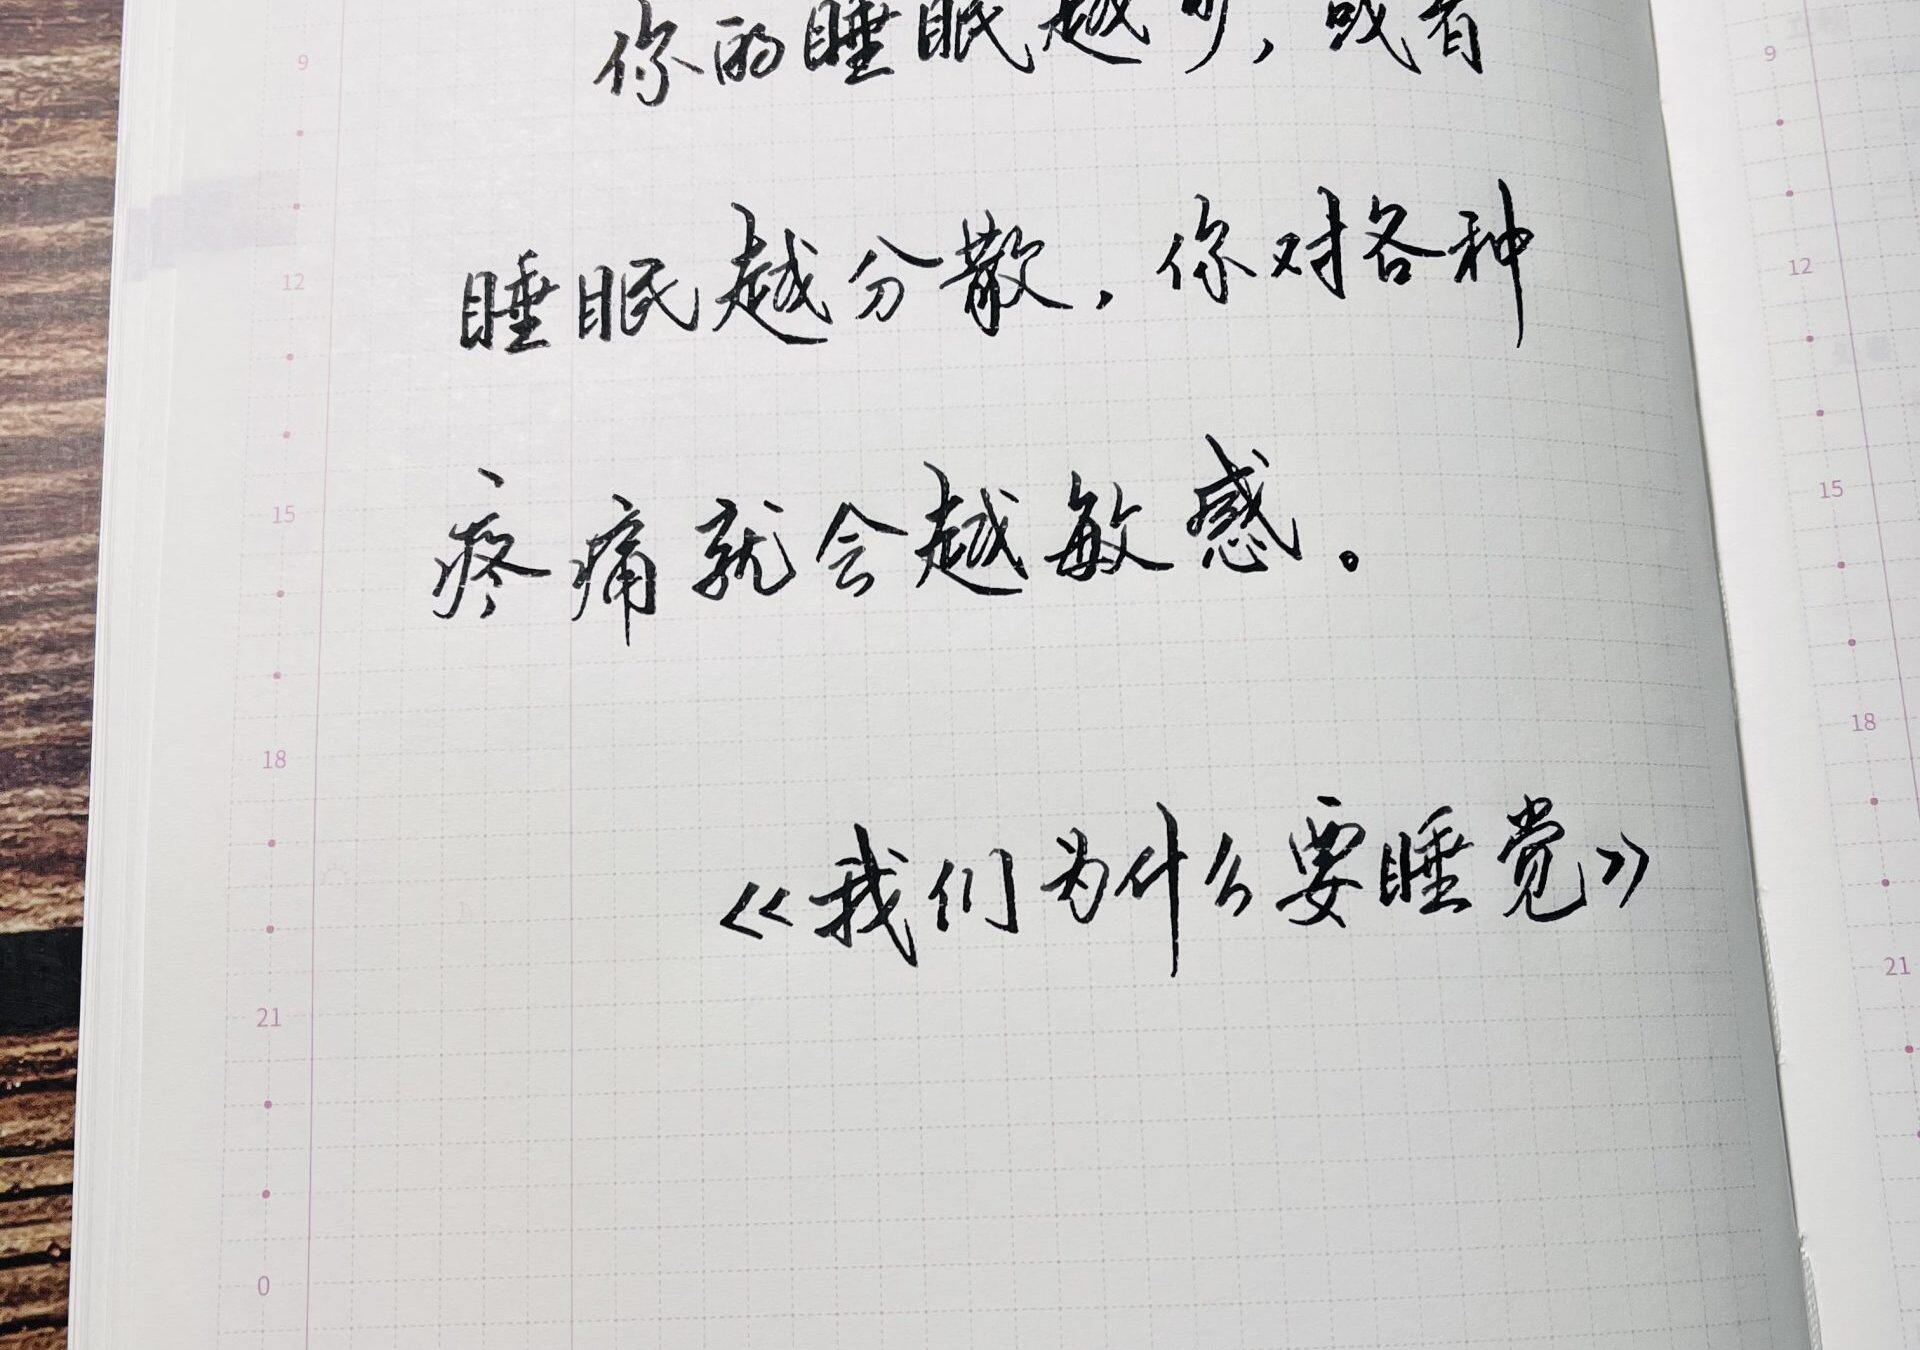 9
你的睡眠越少，或者
12
睡眠越分散，你对各种
15
疼痛就会越敏感。
18
《我们为什么要睡觉》
21
0
9
12
15
18
21